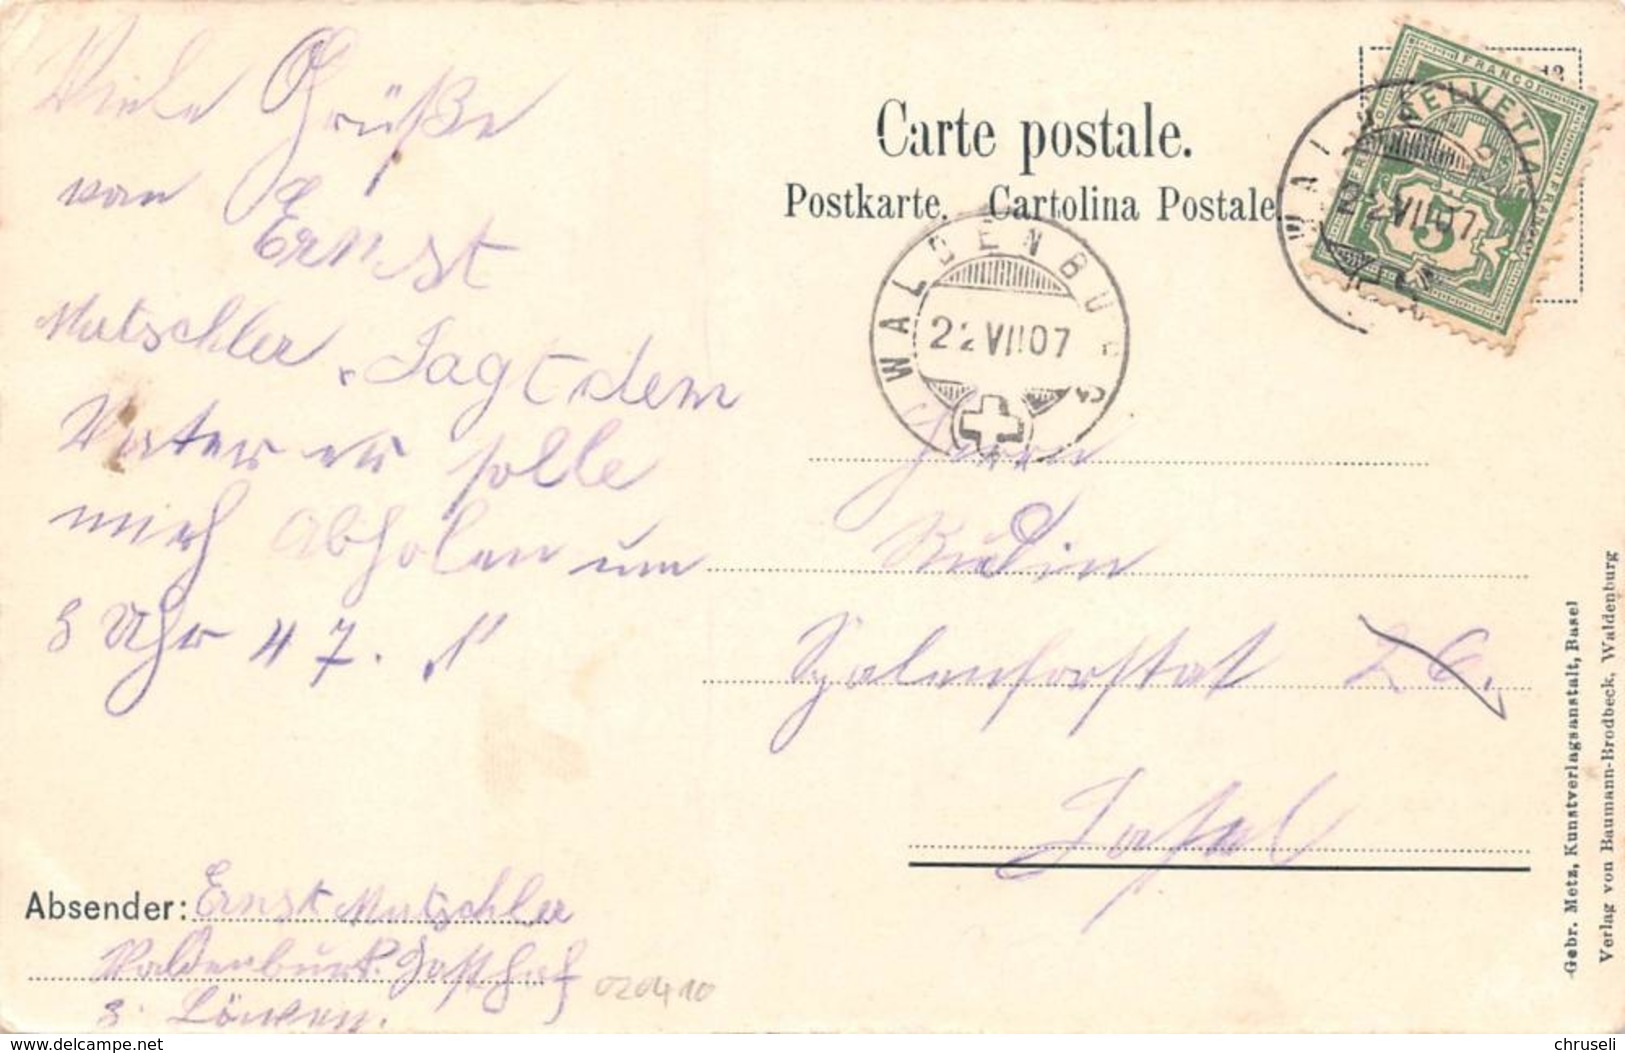 Viele Grüße
von
Ernst
Mutschler. Sagt dem
Vater er solle
mich Abholen um
8 Uhr 47.
Carte postale.
Postkarte. Cartolina Postale.
FRANCO
HELVETIA
5
WALDENBURG
22 VII 07
WALDENBURG
22 VII 07
Herrn
Rudin
Spalenvorstat 26.
Basel
Absender: Ernst Mutschler
Waldenburk. Gasthof
z. Löwen.
020410
Gebr. Metz, Kunstverlagsanstalt, Basel
Verlag von Baumann-Brodbeck, Waldenburg
www.delcampe.net
chruseli